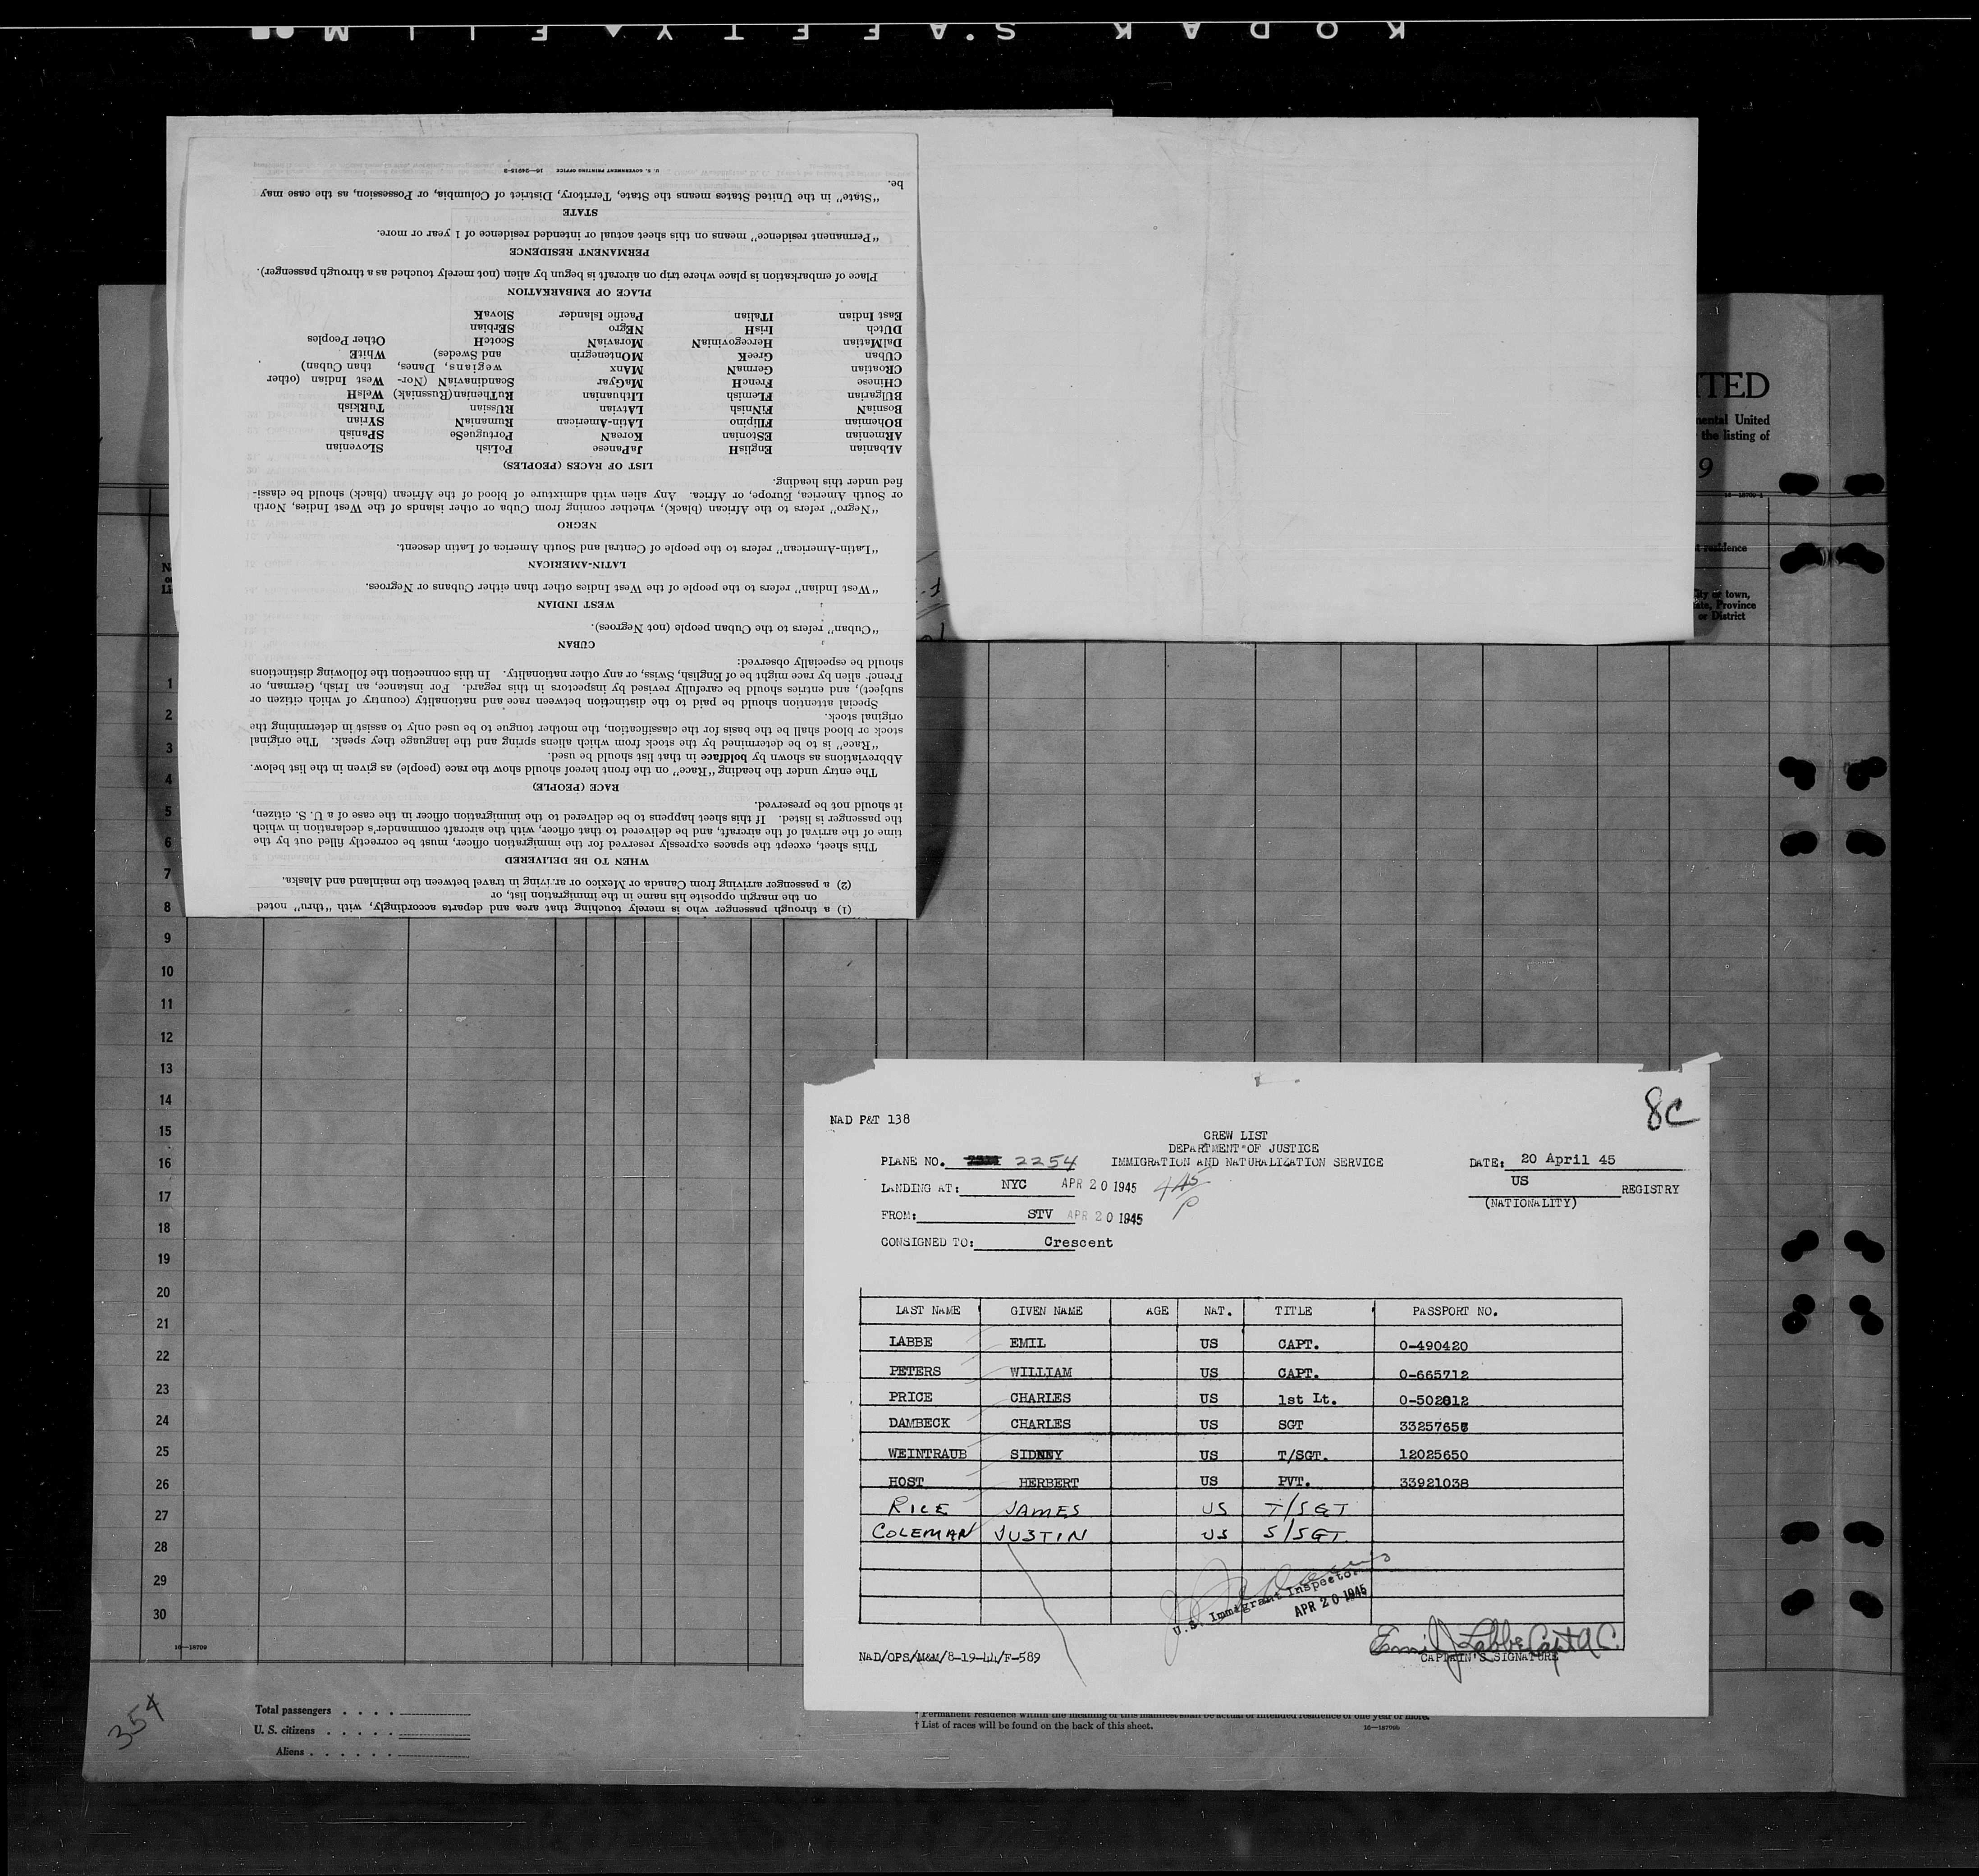 KODAK SAFETY FILM
U. S. GOVERNMENT PRINTING OFFICE 16—24915-3
(1) a through passenger who is merely touching that area and departs accordingly, with "thru" noted
on the margin opposite his name in the immigration list, or
(2) a passenger arriving from Canada or Mexico or arriving in travel between the mainland and Alaska.
WHEN TO BE DELIVERED
This sheet, except the spaces expressly reserved for the immigration officer, must be correctly filled out by the
time of the arrival of the aircraft, and be delivered to that officer, with the aircraft commander's declaration in which
the passenger is listed. If this sheet happens to be delivered to the immigration officer in the case of a U. S. citizen,
it should not be preserved.
RACE (PEOPLE)
The entry under the heading "Race" on the front hereof should show the race (people) as given in the list below.
Abbreviations as shown by boldface in that list should be used.
"Race" is to be determined by the stock from which aliens spring and the language they speak. The original
stock or blood shall be the basis for the classification, the mother tongue to be used only to assist in determining the
original stock.
Special attention should be paid to the distinction between race and nationality (country of which citizen or
subject), and entries should be carefully revised by inspectors in this regard. For instance, an Irish, German, or
French alien by race might be of English, Swiss, or any other nationality. In this connection the following distinctions
should be especially observed:
CUBAN
"Cuban" refers to the Cuban people (not Negroes).
WEST INDIAN
"West Indian" refers to the people of the West Indies other than either Cubans or Negroes.
LATIN-AMERICAN
"Latin-American" refers to the people of Central and South America of Latin descent.
NEGRO
"Negro" refers to the African (black), whether coming from Cuba or other islands of the West Indies, North
or South America, Europe, or Africa. Any alien with admixture of blood of the African (black) should be classi-
fied under this heading.
LIST OF RACES (PEOPLES)
AlbaniaN EnglisH JaPanese PoLish SLOvenian
ARmenian EStonian KoreaN PortugueSe SPanish
BOhemian FIlipino LAtin-American RumaniaN SYrian
BosniaN FiNnish LAtvian RUssian TuRkish
BUlgarian FLemish LIthuanian RuThenian (Russniak) WelsH
CHinese FrencH MaGyar ScandinaviaN (Nor- West Indian (other
CRoatian GermaN MAnx wegians, Danes, than Cuban)
CUban GreeK MOntenegrin and Swedes) WhitE
DalMatian HercegoviniaN MoraviaN ScotcH Other Peoples
DUtch IrisH NEgro SErbian
East Indian ITalian Pacific Islander SlovaK
PLACE OF EMBARKATION
Place of embarkation is place where trip on aircraft is begun by alien (not merely touched as a through passenger).
PERMANENT RESIDENCE
"Permanent residence" means on this sheet actual or intended residence of 1 year or more.
STATE
"State" in the United States means the State, Territory, District of Columbia, or Possession, as the case may
be.
ITED
nental United
the listing of
9
residence
City or town,
State, Province
or District
1
2
3
4
5
6
7
8
9
10
11
12
13
14
15
16
17
18
19
20
21
22
23
24
25
26
27
28
29
30
16—18709
354
Total passengers
U. S. citizens
Aliens
* Permanent residence within the meaning of this manifest shall be actual or intended residence of one year or more.
† List of races will be found on the back of this sheet.
16—18709b
8C
NAD P&T 138
CREW LIST
DEPARTMENT OF JUSTICE
PLANE NO. 2254 IMMIGRATION AND NATURALIZATION SERVICE DATE: 20 April 45
LANDING AT: NYC APR 20 1945 US REGISTRY
(NATIONALITY)
FROM: STV APR 20 1945
CONSIGNED TO: Crescent
LAST NAME GIVEN NAME AGE NAT. TITLE PASSPORT NO.
LABBE EMIL US CAPT. 0-490420
PETERS WILLIAM US CAPT. 0-665712
PRICE CHARLES US 1st Lt. 0-502812
DAMBECK CHARLES US SGT
WEINTRAUB SIDNEY US T/SGT. 12025650
HOST HERBERT US PVT. 33921038
RICE JAMES US T/SGT
COLEMAN JUSTIN US S/SGT
U.S. Immigrant Inspector
APR 20 1945
Emil J Labbe Capt A.C.
CAPTAIN'S SIGNATURE
NAD/OPS/M&M/8-19-44/F-589